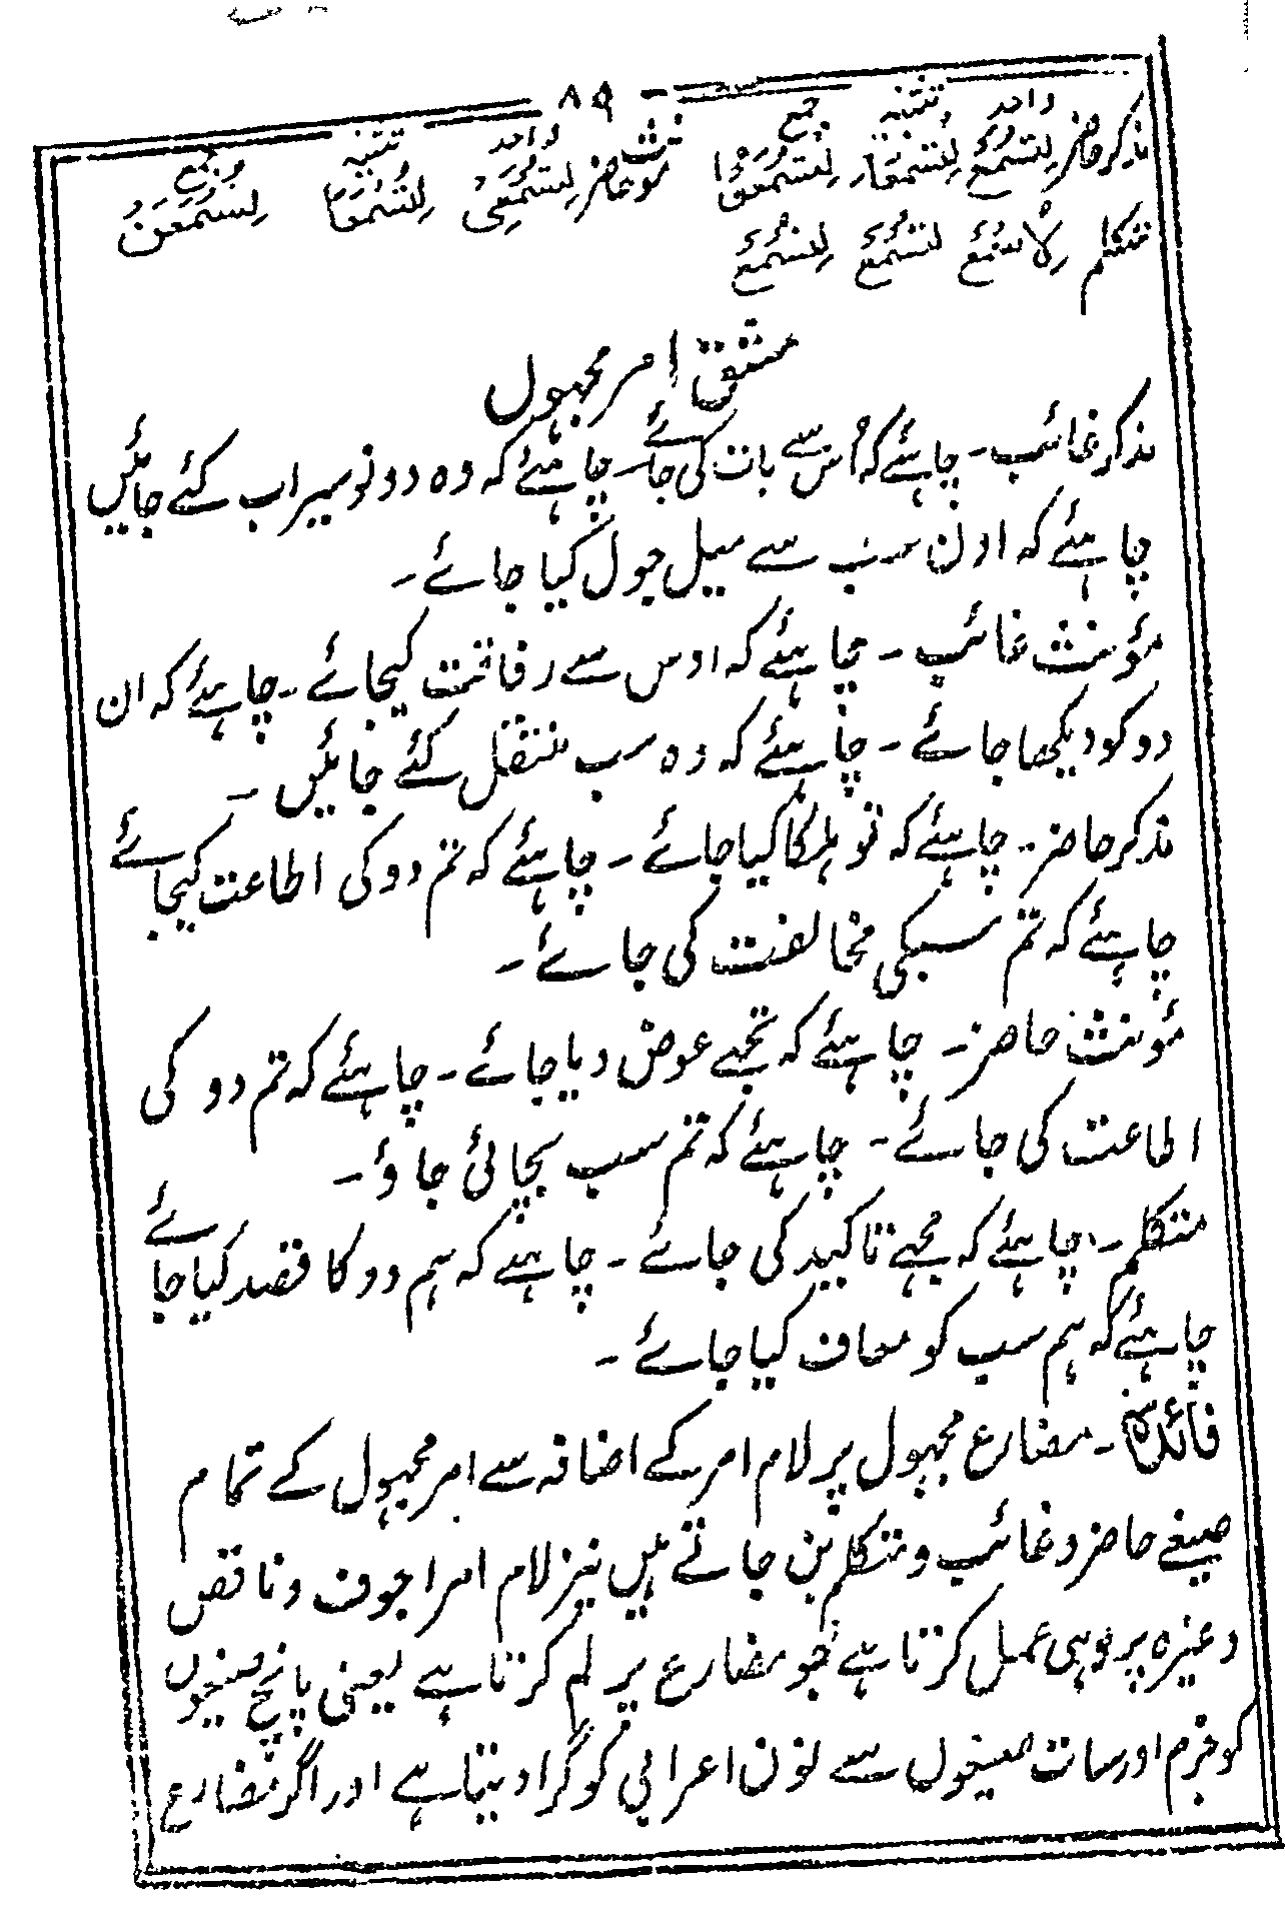 ۸۹
واحد تثنیہ جمع واحد تثنیہ جمع
مذکر حاضر لِتُسْمَعْ لِتُسْمَعَا لِتُسْمَعُوْا مونث حاضر لِتُسْمَعِیْ لِتُسْمَعَا لِتُسْمَعْنَ
متکلم لِاُسْمَعْ لِنُسْمَعْ لِنُسْمَعْ
مشق امر مجہول
مذکر غائب۔ چاہئے کہ اُس سے بات کی جائے۔ چاہئے کہ وہ دونو سیراب کئے جائیں
چاہئے کہ اون سب سے میل جول کیا جائے۔
مؤنث غائب۔ چاہئے کہ اوس سے رفاقت کیجائے۔ چاہئے کہ ان
دو کو دیکھا جائے۔ چاہئے کہ وہ سب منتقل کئے جائیں۔
مذکر حاضر۔ چاہئے کہ تو ہلکا کیا جائے۔ چاہئے کہ تم دو کی اطاعت کیجائے
چاہئے کہ تم سبکی مخالفت کی جائے۔
مؤنث حاضر۔ چاہئے کہ تجہے عوض دیا جائے۔ چاہئے کہ تم دو کی
اطاعت کی جائے۔ چاہئے کہ تم سب بچائی جاؤ۔
متکلم۔ چاہئے کہ مجہے تاکید کی جائے۔ چاہئے کہ ہم دو کا قصد کیا جائے
چاہئے کہ ہم سب کو معاف کیا جائے۔
فائدہ۔ مضارع مجہول پر لام امر کے اضافہ سے امر مجہول کے تمام
صیغے حاضر و غائب و متکلم بن جاتے ہیں نیز لام امر اجوف و ناقص
وغیرہ پر وہی عمل کرتا ہے جو مضارع پر لم کرتا ہے یعنی پانچ صیغوں
کو جزم اور سات صیغوں سے نون اعرابی کو گرا دیتا ہے اور اگر مضارع